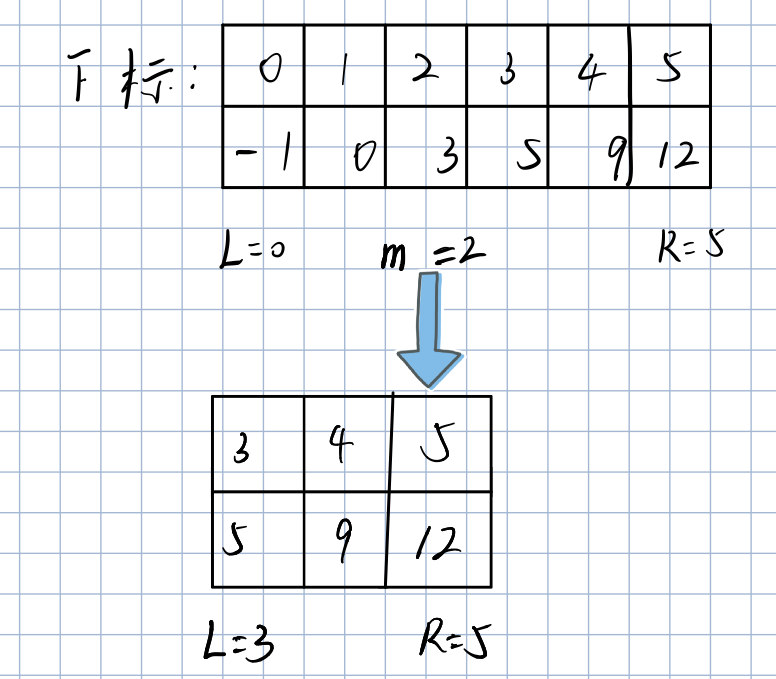 下标: 0 1 2 3 4 5
-1 0 3 5 9 12
L=0 m=2 R=5
3 4 5
5 9 12
L=3 R=5